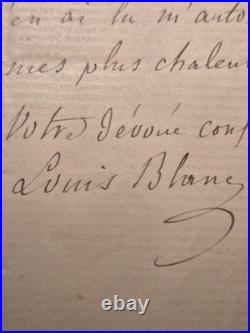 en ai lu m'auto
mes plus chaleu
Votre dévoué conf
Louis Blanc